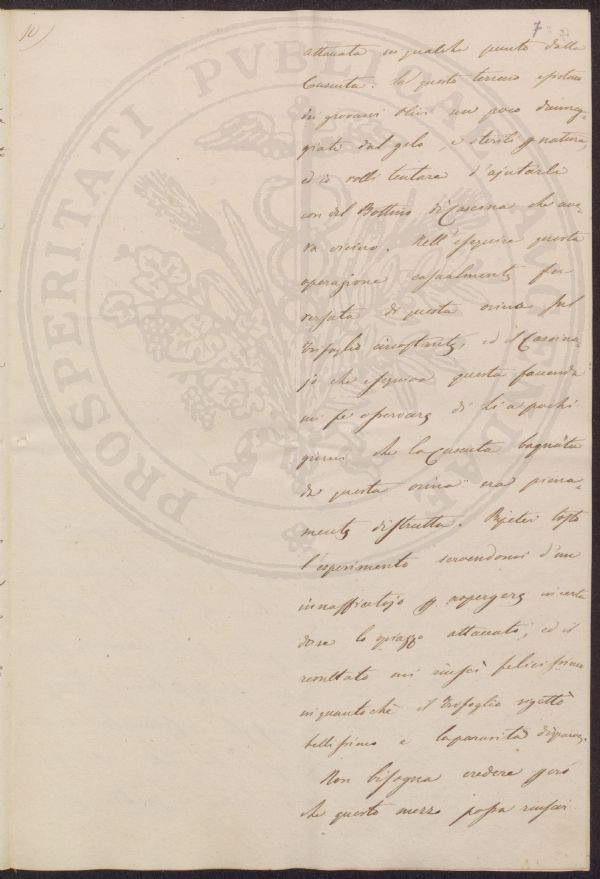 10)
7
attaccata in qualche punto dalla
Cuscuta. In questo terreno esistono
dei giovani Olivi un poco danneg-
giati dal gelo, e sterili p natura,
ed io volli tentare d'ajutarli
con del Bottino di Cascina che ave-
va vicino. Nell'eseguire questa
operazione casualmente fu
versata di questa orina sul
Trifoglio circostante, ed il Cascina-
jo che eseguiva questa faccenda
mi fè osservare di lì a pochi
giorni che la Cuscuta bagnata
da questa orina era piena-
mente distrutta. Ripetei tosto
l'esperimento servendomi d'un
innaffiatojo p aspergere
dove lo spiazzo attaccato, ed il
resultato mi riuscì felicissimo
in quantochè il Trifoglio vegetò
bellissimo e la parassita disparve.
Non bisogna credere però
che questo mezzo possa riuscir
PROSPERITATI PVBLICAE AVGENDAE